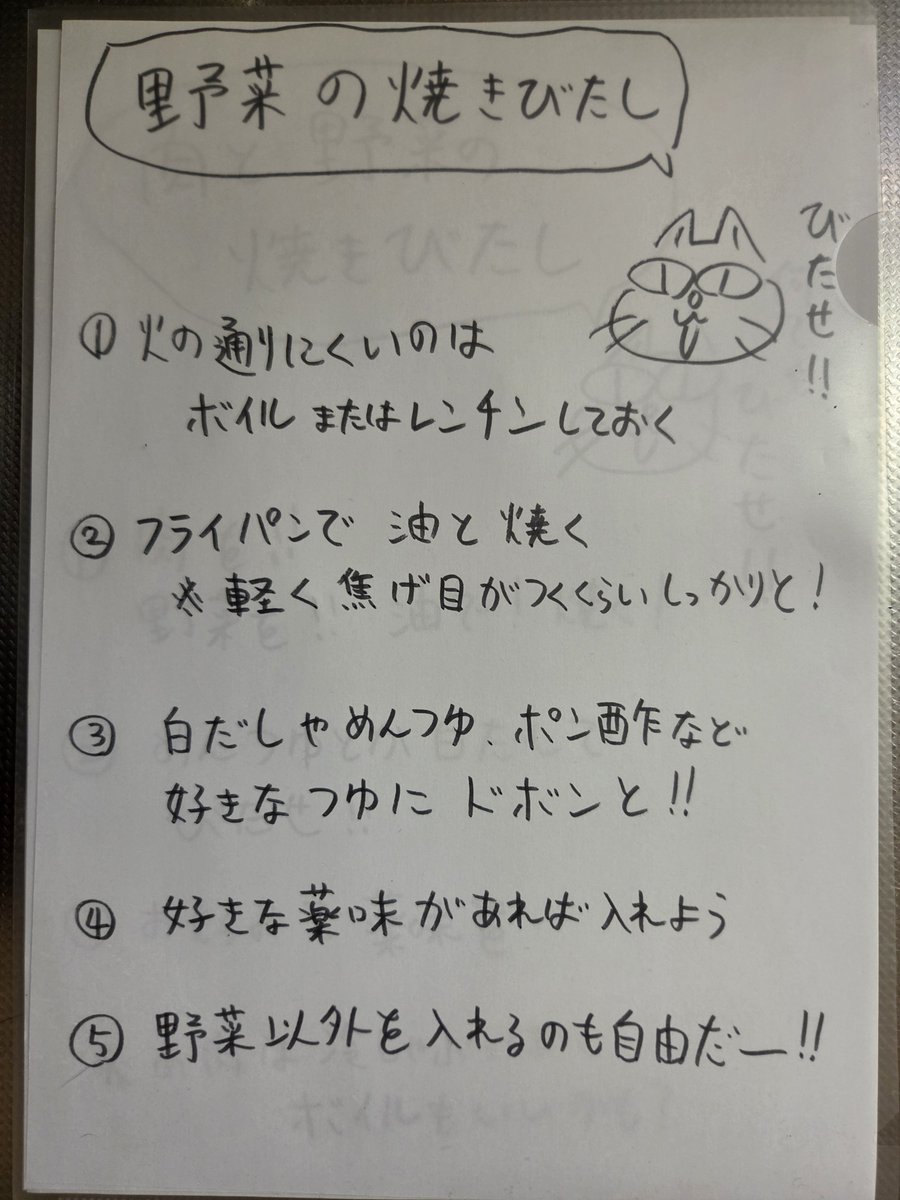 野菜の焼きびたし
びたせ!!
① 火の通りにくいのは
ボイルまたはレンチンしておく
② フライパンで 油と焼く
※軽く焦げ目がつくくらいしっかりと!
③ 白だしやめんつゆ、ポン酢など
好きなつゆに ドボンと!!
④ 好きな薬味があれば入れよう
⑤ 野菜以外を入れるのも自由だー!!
肉と野菜の
焼きびたし